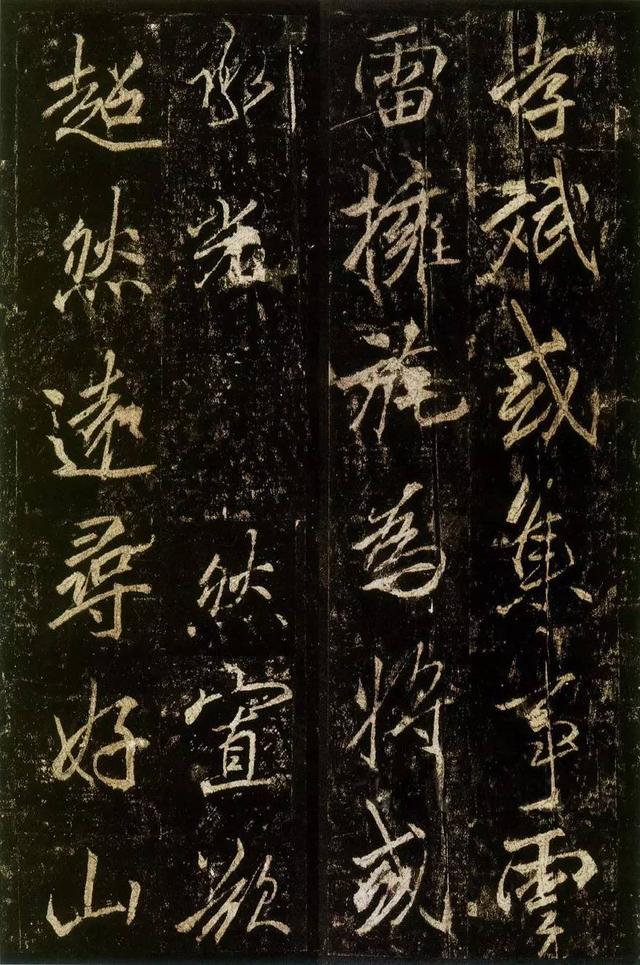 孝斌或集事雲
雷擁旄為將或
承光然
超然遠尋好山